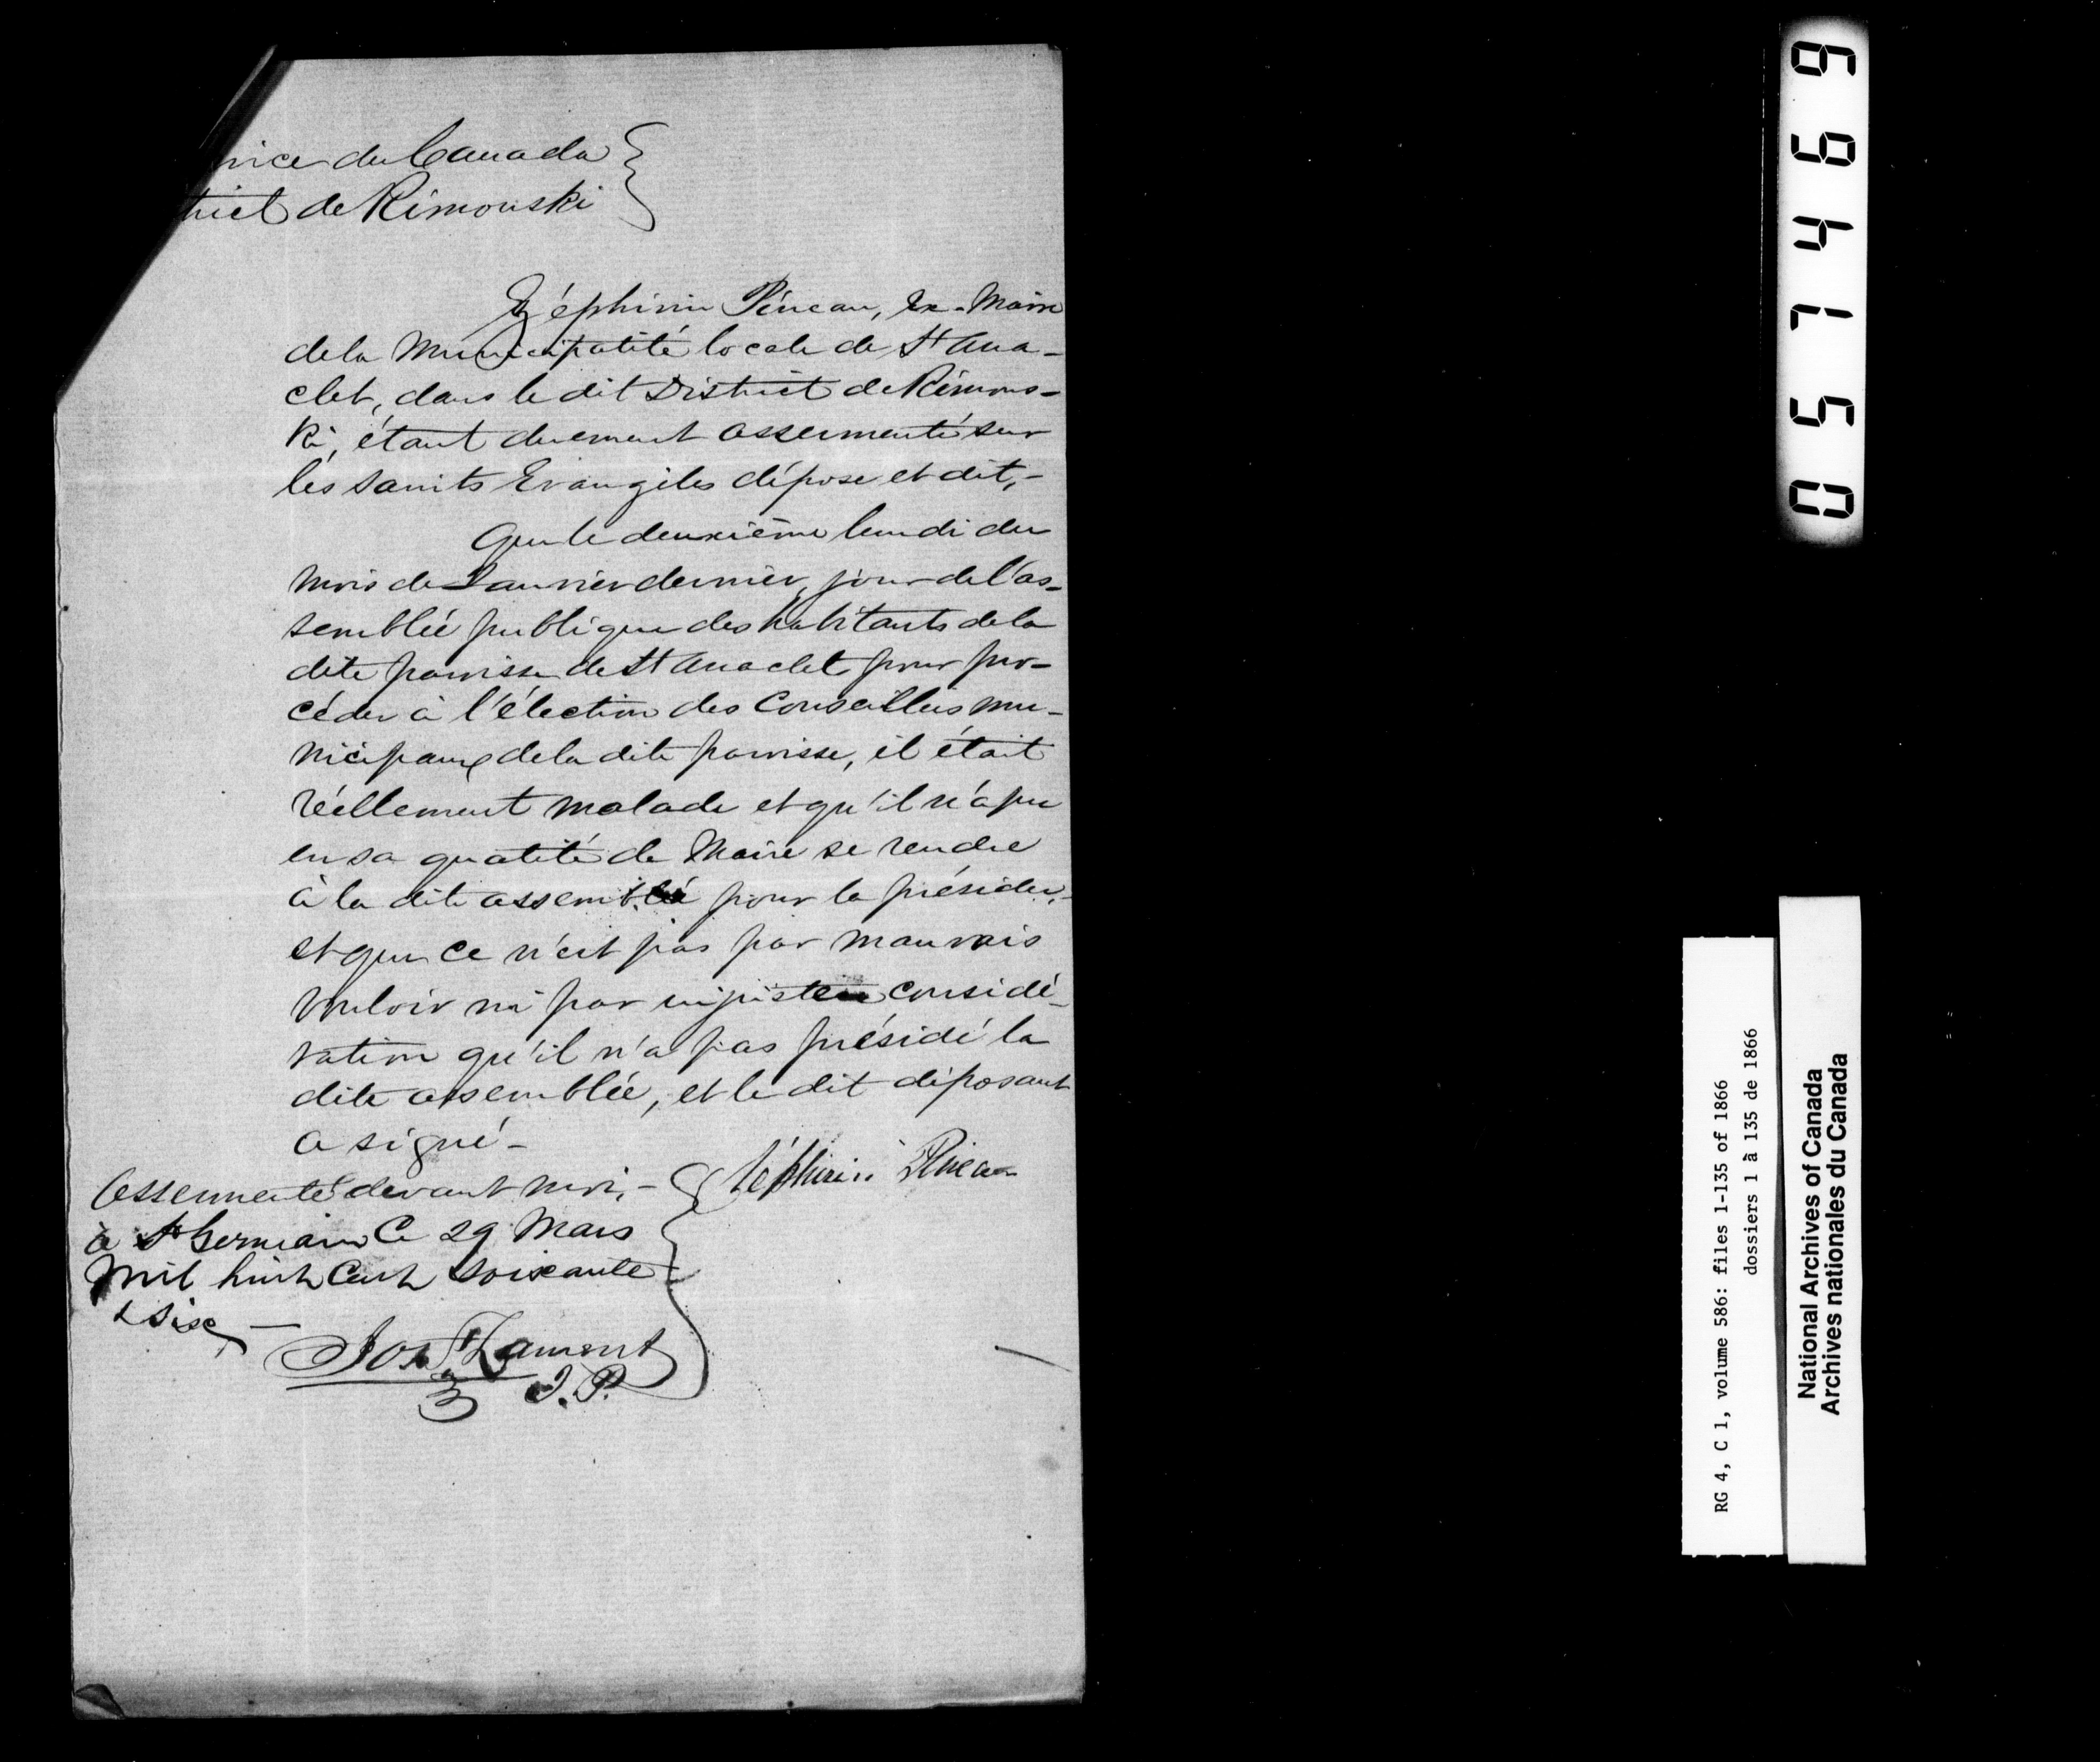 nice du Canada
trict de Rimouski
Zéphirin Pineau, Ex-Maire
de la Municipalité locale de St Ana-
clet, dans le dit District de Rimous-
ki, étant duement assermenté sur
les saints Evangiles dépose et dit,-
Que le deuxième lundi du
mois de Janvier dernier, jour de l'as-
semblée publique des habitants de la
dite paroisse de St Anaclet pour pro-
céder à l'élection des Conseillers mu-
nicipaux de la dite paroisse, il était
réellement malade et qu'il n'a pu
en sa qualité de Maire se rendre
à la dite assemblée pour la présider,-
et que ce n'est pas par mauvais
vouloir ni par injuste considé-
ration qu'il n'a pas présidé la
dite assemblée, et le dit déposant
a signé-
Assermenté devant moi,-
Zéphirin Pineau
à St Germain Ce 29 Mars
Mil huit Cent soixante
& six
Jos St Lamont
J.P.
057469
RG 4, C 1, volume 586: files 1-135 of 1866
dossiers 1 à 135 de 1866
National Archives of Canada
Archives nationales du Canada